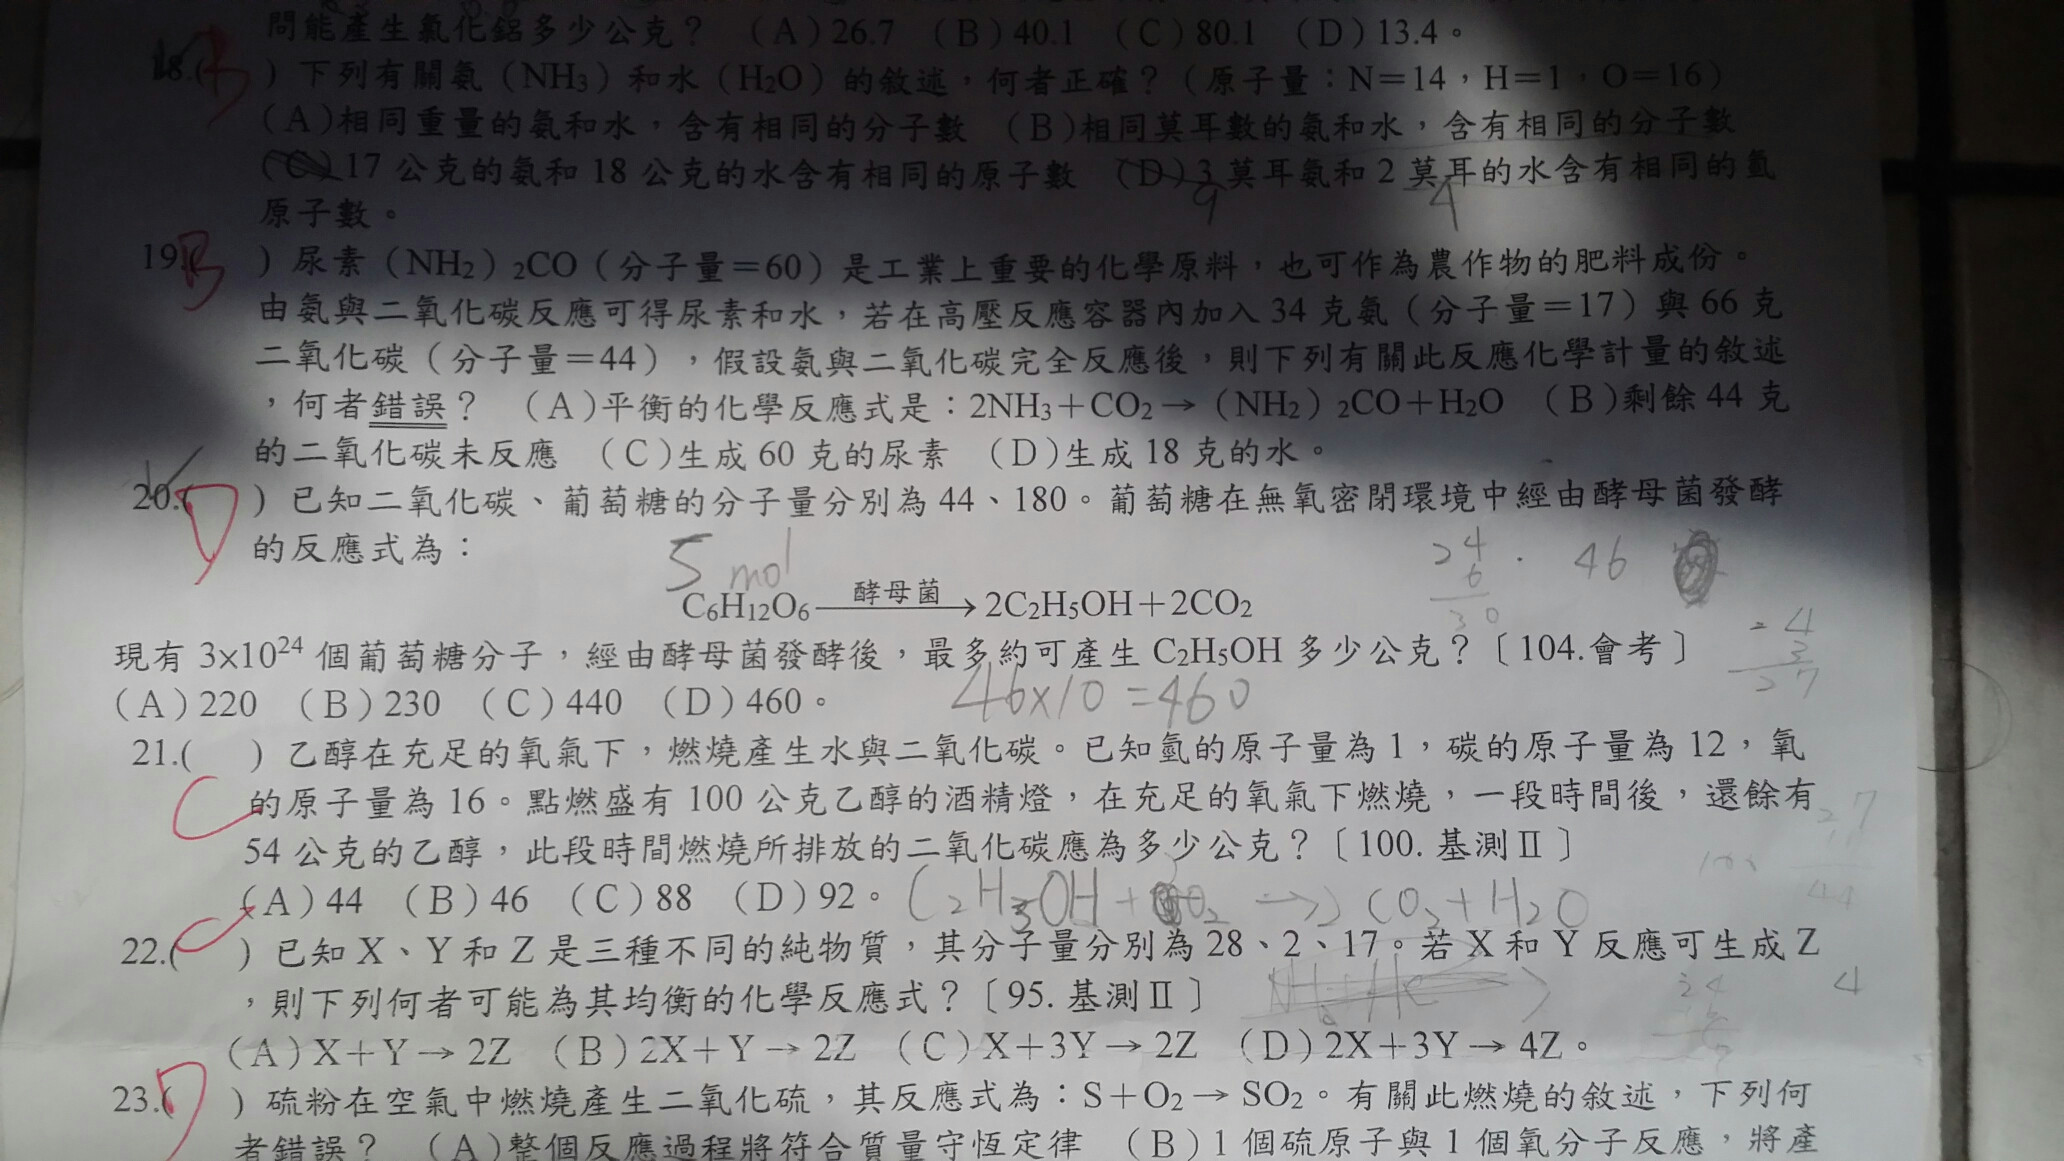 問能產生氯化鋁多少公克？ （A）26.7 （B）40.1 （C）80.1 （D）13.4。
18.( B ) 下列有關氨（NH3）和水（H2O）的敘述，何者正確？（原子量：N＝14，H＝1，O＝16）
（A)相同重量的氨和水，含有相同的分子數 （B)相同莫耳數的氨和水，含有相同的分子數
（C）17 公克的氨和 18 公克的水含有相同的原子數 （D）3 莫耳氨和 2 莫耳的水含有相同的氫
9 4
原子數。
19.( B ) 尿素（NH2）2CO（分子量＝60）是工業上重要的化學原料，也可作為農作物的肥料成份。
由氨與二氧化碳反應可得尿素和水，若在高壓反應容器內加入 34 克氨（分子量＝17）與 66 克
二氧化碳（分子量＝44），假設氨與二氧化碳完全反應後，則下列有關此反應化學計量的敘述
，何者錯誤？ （A)平衡的化學反應式是：2NH3＋CO2→（NH2）2CO＋H2O （B)剩餘 44 克
的二氧化碳未反應 （C)生成 60 克的尿素 （D)生成 18 克的水。
20.( D ) 已知二氧化碳、葡萄糖的分子量分別為 44、180。葡萄糖在無氧密閉環境中經由酵母菌發酵
的反應式為：
5 mol
24 46
6
30
酵母菌
C6H12O6→2C2H5OH＋2CO2
現有 3×10²⁴ 個葡萄糖分子，經由酵母菌發酵後，最多約可產生 C2H5OH 多少公克？〔104.會考〕
（A）220 （B）230 （C）440 （D）460。
46×10=460
27
21.( C ) 乙醇在充足的氧氣下，燃燒產生水與二氧化碳。已知氫的原子量為 1，碳的原子量為 12，氧
的原子量為 16。點燃盛有 100 公克乙醇的酒精燈，在充足的氧氣下燃燒，一段時間後，還餘有
54 公克的乙醇，此段時間燃燒所排放的二氧化碳應為多少公克？〔100. 基測Ⅱ〕
（A）44 （B）46 （C）88 （D）92。
22.( C ) 已知 X、Y 和 Z 是三種不同的純物質，其分子量分別為 28、2、17。若 X 和 Y 反應可生成 Z
，則下列何者可能為其均衡的化學反應式？〔95. 基測Ⅱ〕
4
（A）X＋Y→2Z （B）2X＋Y→2Z （C）X＋3Y→2Z （D）2X＋3Y→4Z。
23.( D ) 硫粉在空氣中燃燒產生二氧化硫，其反應式為：S＋O2→SO2。有關此燃燒的敘述，下列何
者錯誤？ （A)整個反應過程將符合質量守恆定律 （B）1 個硫原子與 1 個氧分子反應，將產